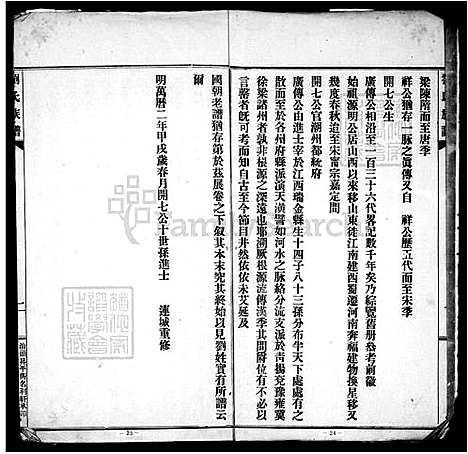 梁陳隋而至唐季
祥公猶存一脉之眞傳又自　祥公歷五代而至宋季
開七公生
廣傳公相沿至一百三十六代畧記數千年矣乃綜覽舊册叅考前徽
始祖源明公居山西明以來移山東徙江南建西蜀遷河南奔福建物換星移又
幾度春秋迨至宋甯宗嘉定間
開七公官潮州都統府
廣傳公由進士宰於江西瑞金縣生十四子八十三孫分布半天下處處有之
散而至於各州府縣派演天潢譬如河水之脉絡分流支派於靑揚兗豫雍冀
徐梁諸州者孰非根源之深遠也耶溯厥根源流傳漢季其間爵位有不必以
言罄者旣可考而知自古至今節目井然依依未艾延及
國朝老譜猶存第於茲展卷之下叙其本末究其終始以見劉姓實有所譜云
爾
明萬曆二年甲戌歲春月開七公十世孫進士　連城重修
氏族譜
FamilySearch
24
25